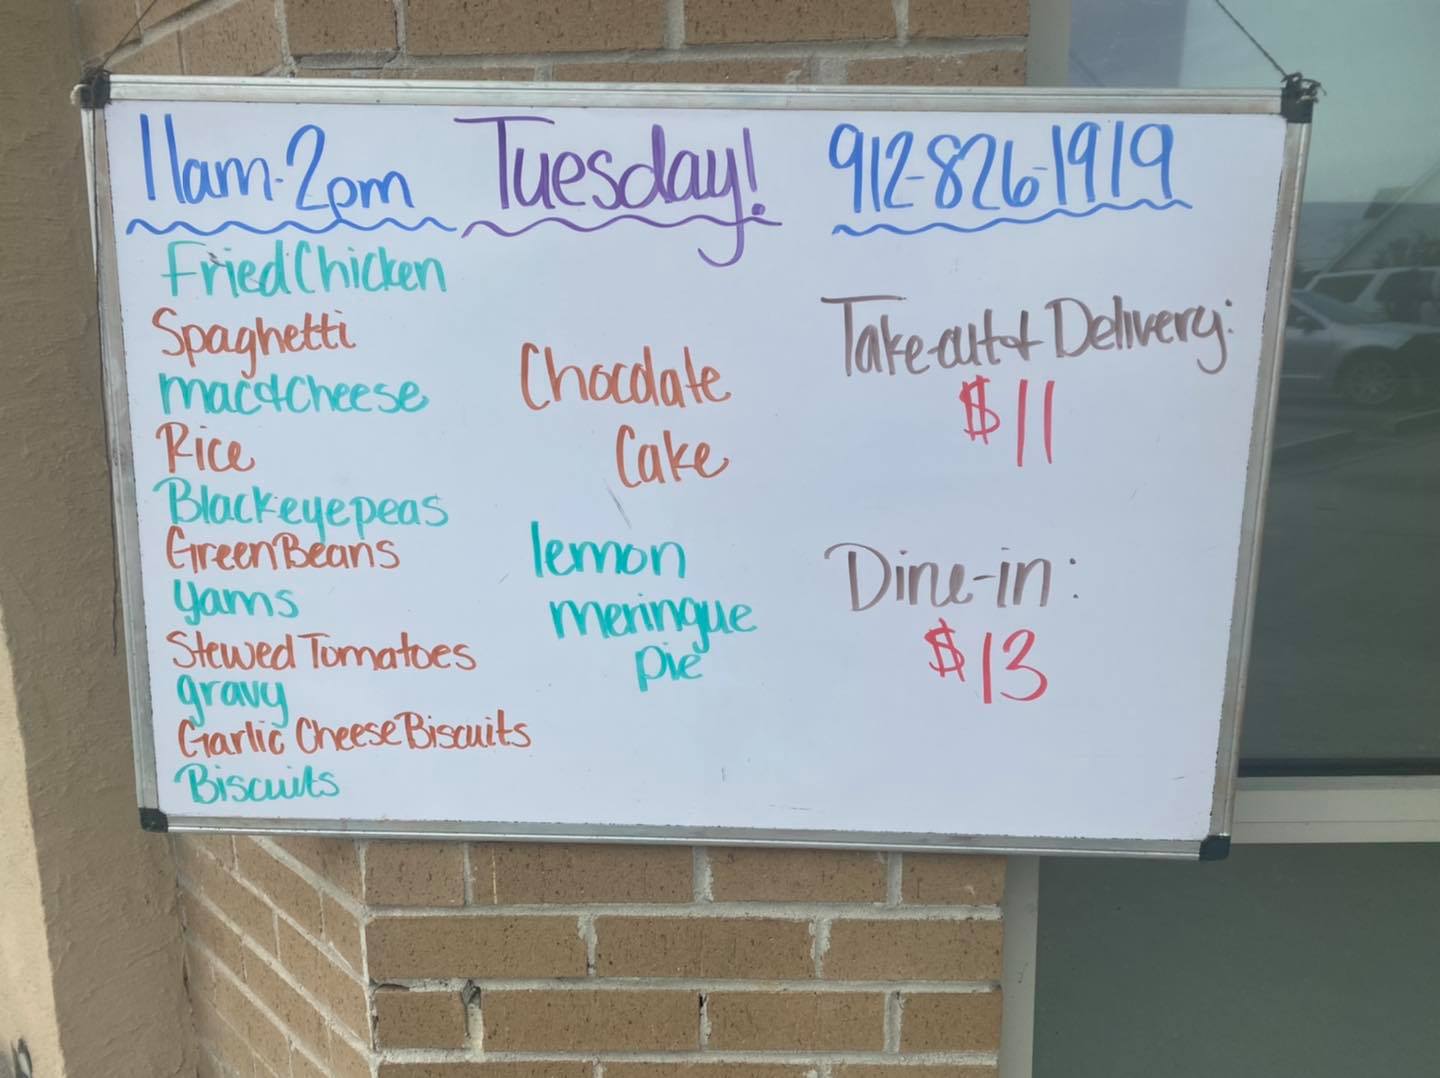 11am-2pm Tuesday! 912-826-1919
Fried Chicken
Spaghetti
mac&Cheese
Rice
Blackeyepeas
Green Beans
yams
Stewed Tomatoes
gravy
Garlic Cheese Biscuits
Biscuits
Chocolate
Cake
lemon
meringue
pie
Take-out & Delivery:
$11
Dine-in:
$13